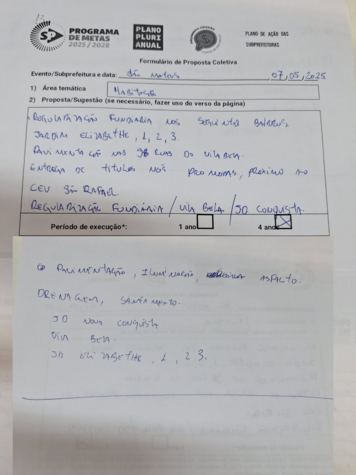 PROGRAMA DE METAS 2025/2028
PLANO PLURIANUAL
PLANO DE AÇÃO DAS SUBPREFEITURAS
Formulário de Proposta Coletiva
Evento/Subprefeitura e data: São Mateus 07/05/2025
1) Área temática HABITAÇÃO
2) Proposta/Sugestão (se necessário, fazer uso do verso da página)
REGULARIZAÇÃO FUNDIARIA NOS BAIRROS,
JARDIM ELIZABETHE, 1, 2, 3.
PAVIMENTAÇÃO NAS RUAS DO VILA BELA.
ENTREGA DE TITULOS NOS PROXIMO AO
CEU SÃO RAFAEL
REGULARIZAÇÃO FUNDIÁRIA / VILA BELA / JD CONQUISTA.
Período de execução*: 1 ano 4 anos
PAVIMENTAÇÃO, ILUMINAÇÃO, ASFALTO.
DRENAGEM, SANIAMENTO.
JD NOVA CONQUISTA
VILA BELA.
JD ELIZABETHE, 1, 2 3.